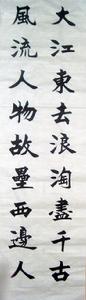 大江東去浪淘盡千古
風流人物故壘西邊人